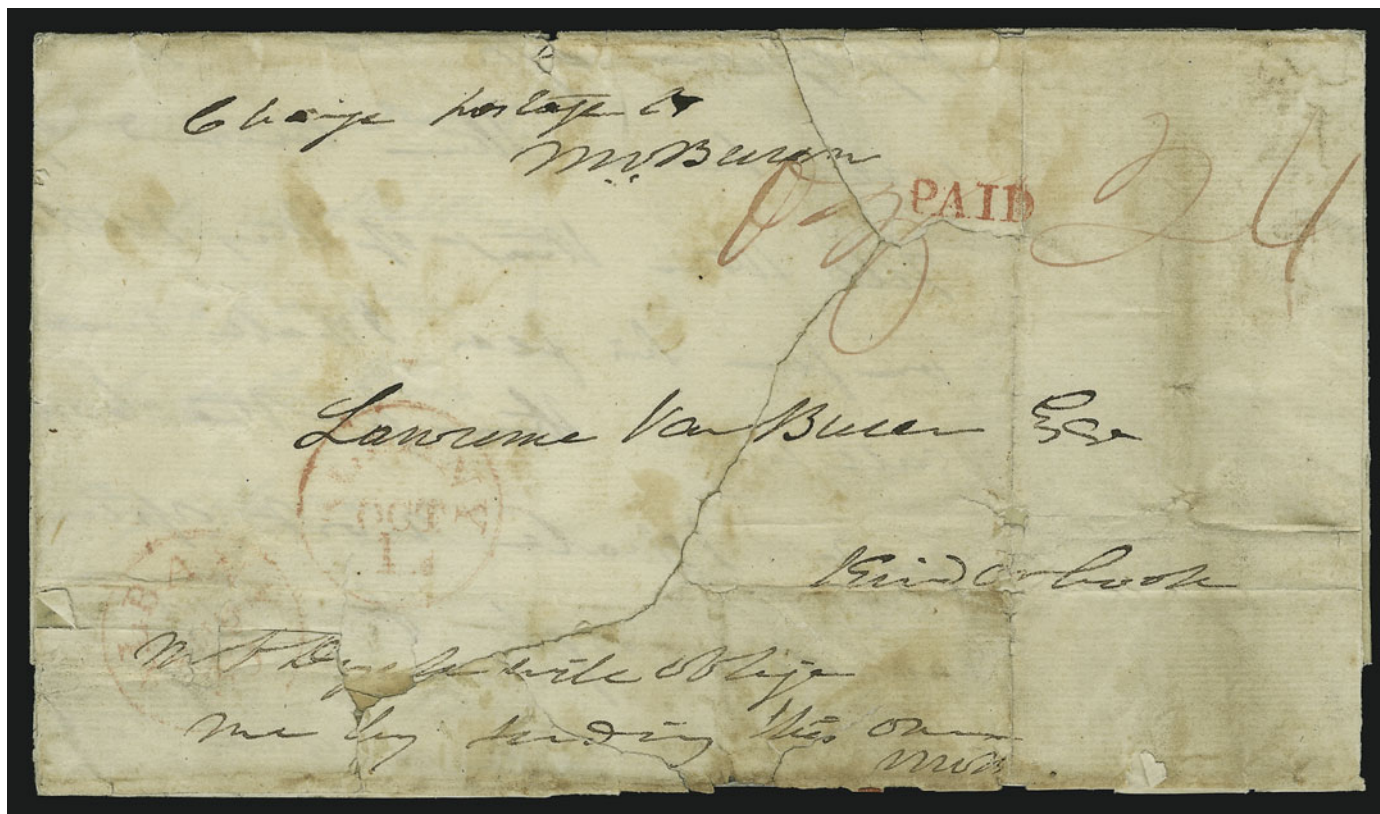 Charge postage to
MVBuren
PAID
24
Lawrence Van Buren Esqr
OCT
1
Kinderhook
ALBANY
will oblige
me by sending this over
MVB